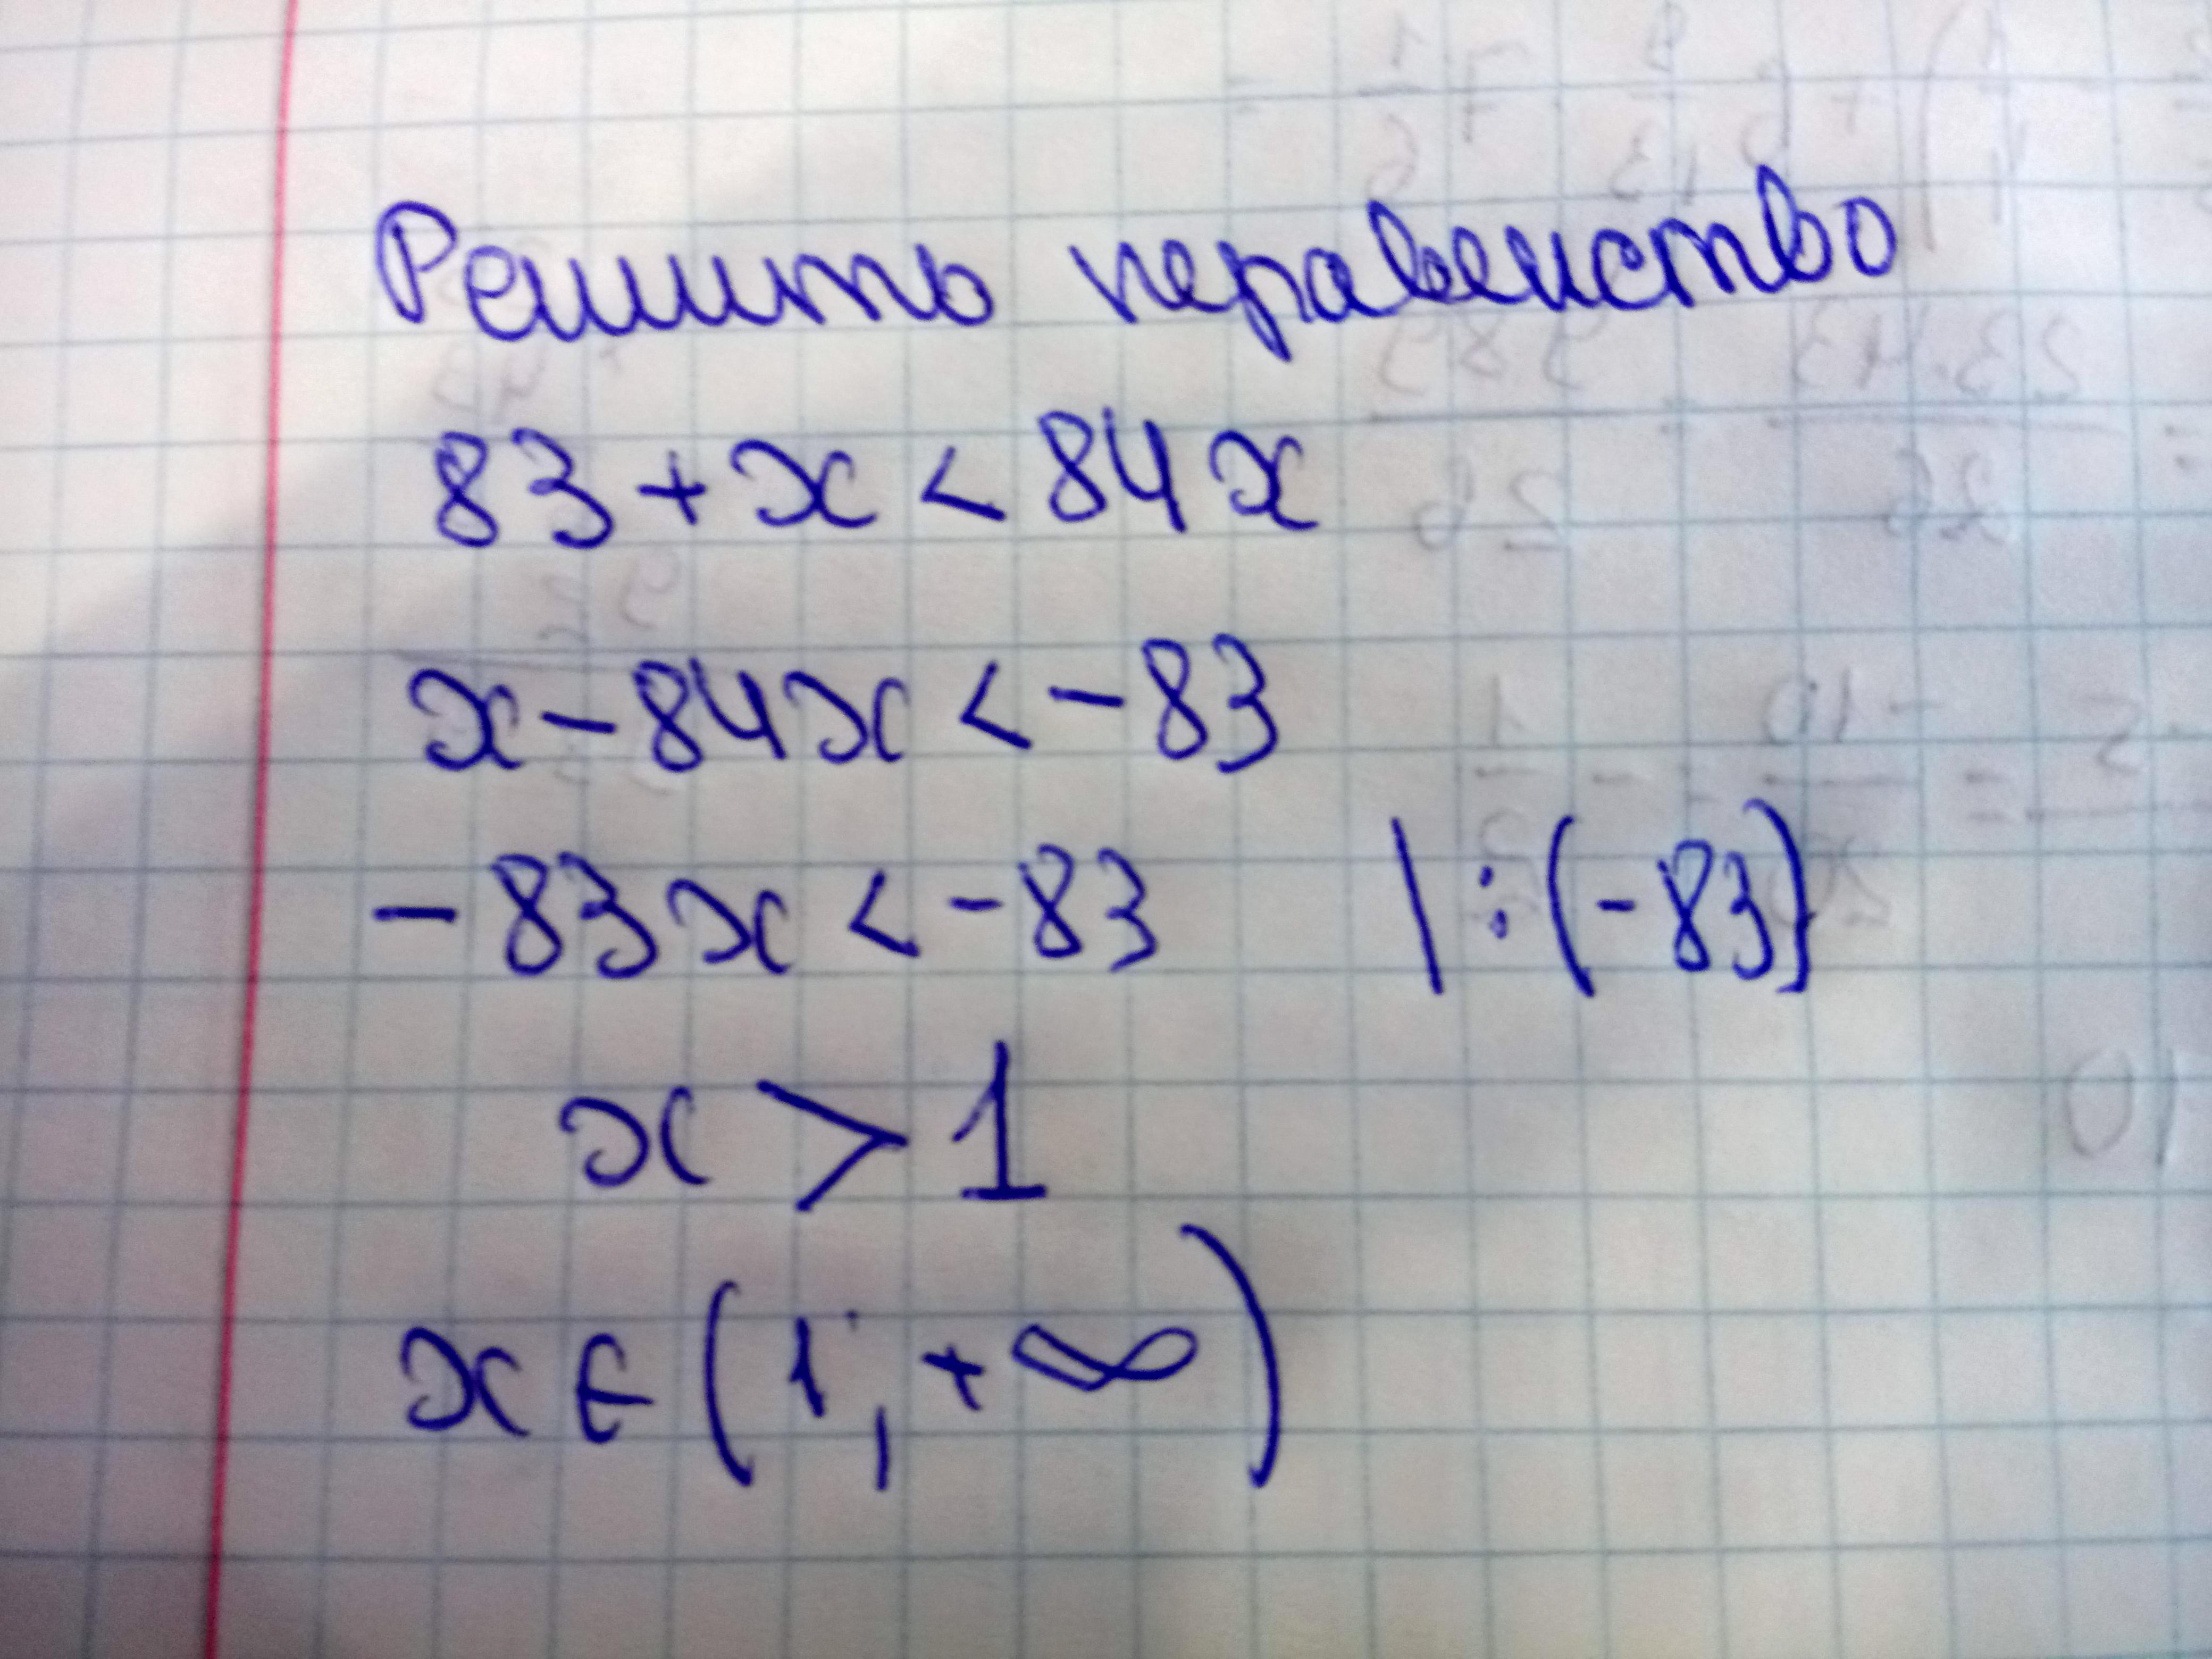 Решить неравенство
83 + x < 84x
x - 84x < -83
-83x < -83 | : (-83)
x > 1
x ∈ (1; +∞)